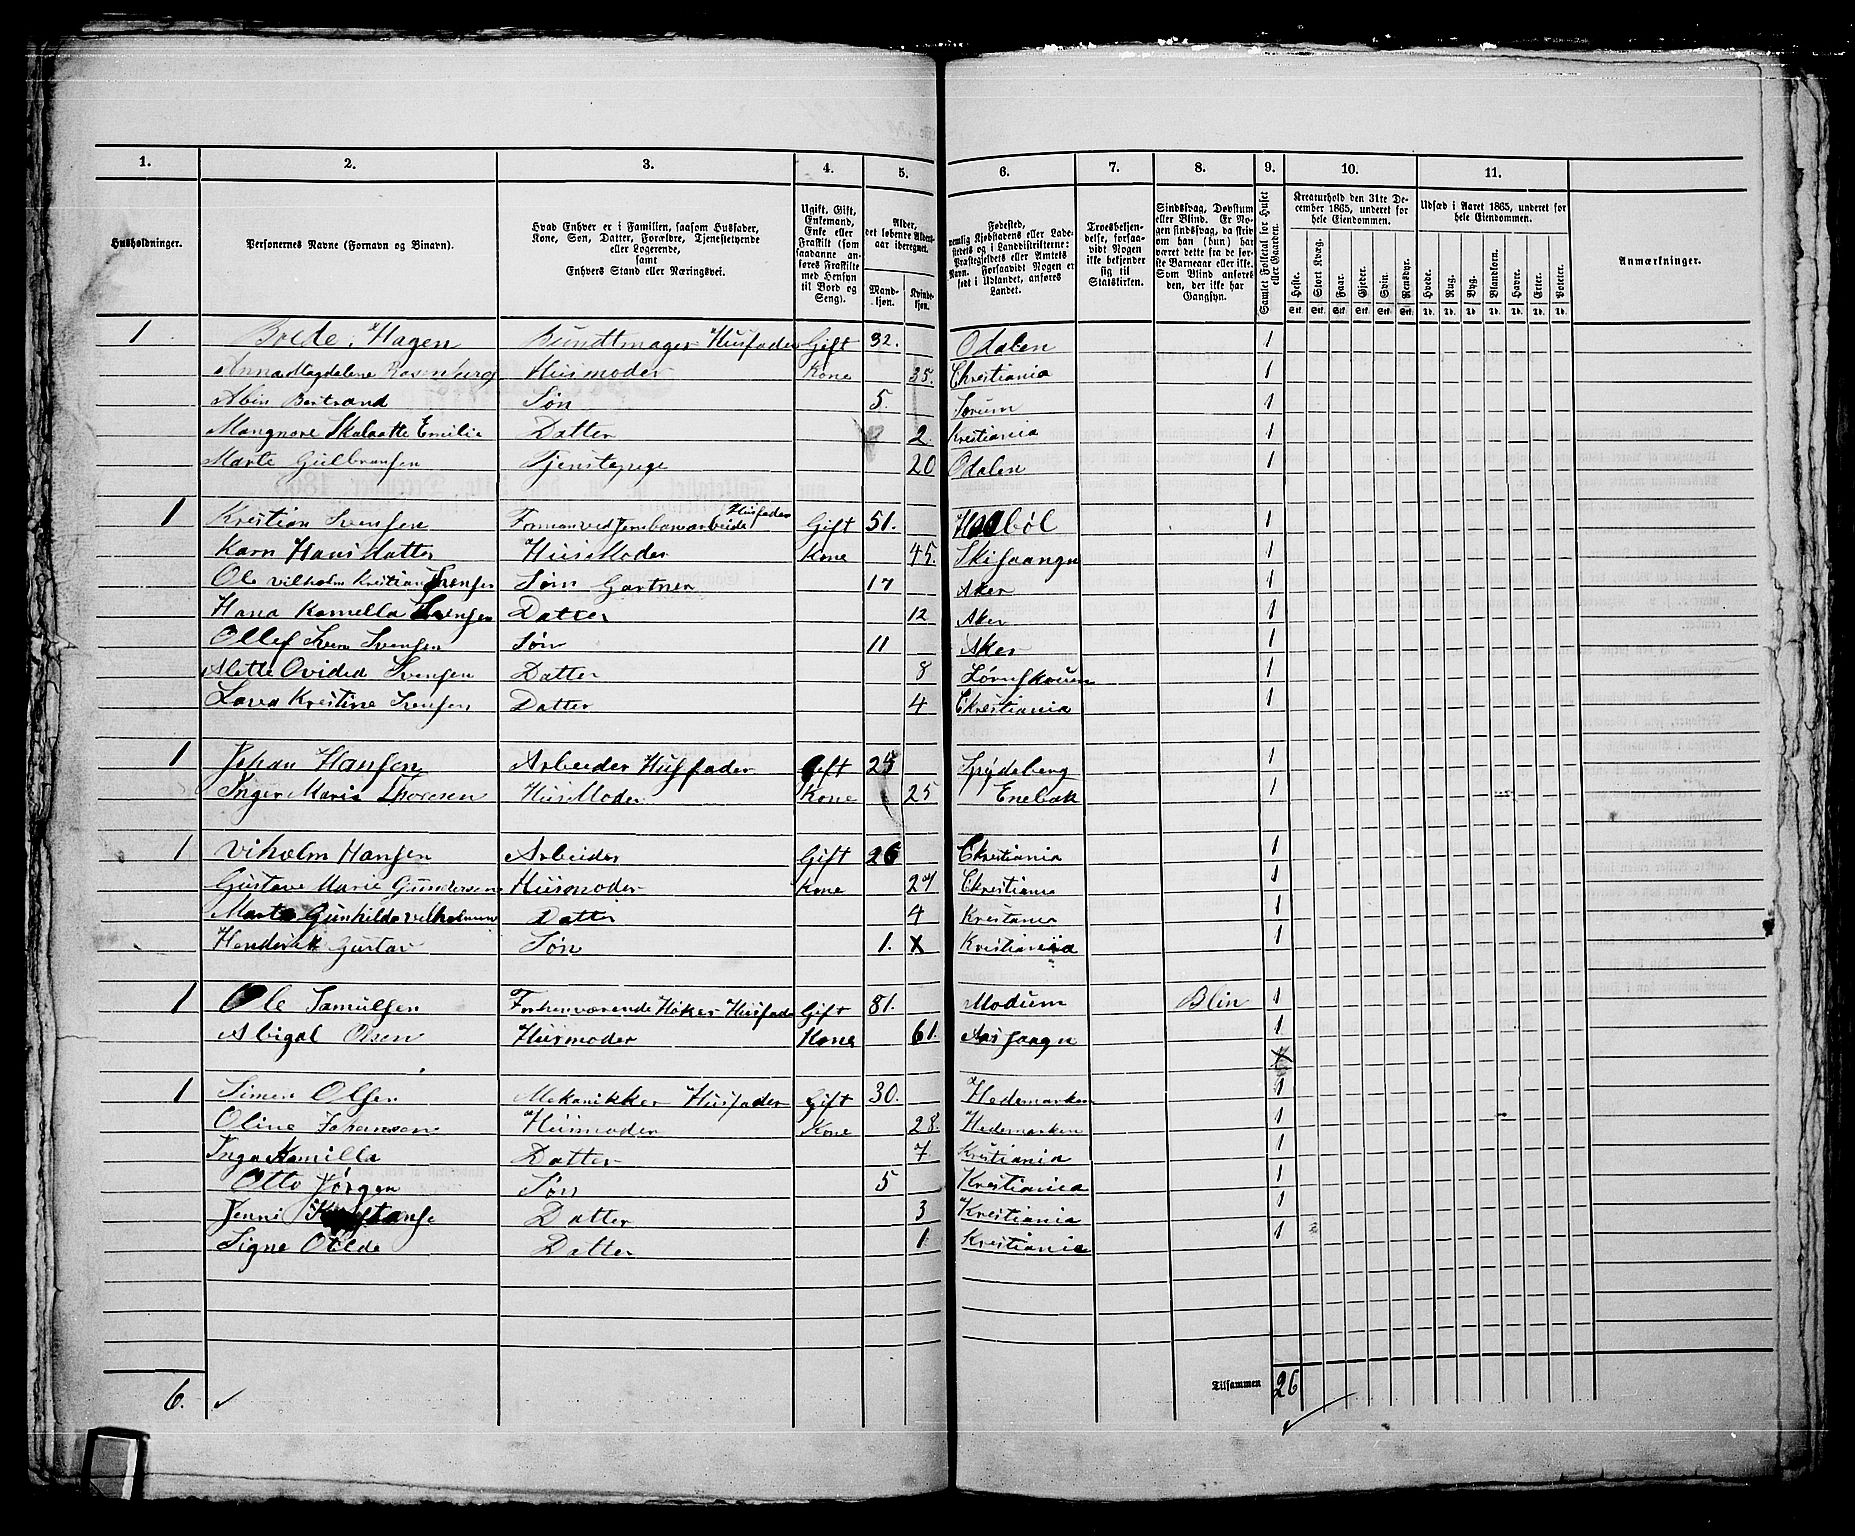 1. 2. 3. 4. 5. 6. 7. 8. 9. 10. 11.
Husholdninger.
Personernes Navne (Fornavn og Binavn).
Hvad Enhver er i Familien, saasom Husfader,
Kone, Søn, Datter, Forældre, Tjenestetyende
eller Logerende,
samt
Enhvers Stand eller Næringsvei.
Ugift, Gift,
Enkemand,
Enke eller
Fraskilt (som
saadanne an-
føres Fraskilte
med Hensyn
til Bord og
Seng).
Alder,
det løbende Alders-
aar iberegnet.
Mand-
kjøn.
Kvinde-
kjøn.
Fødested,
nemlig Kjøbstadens eller Lade-
stedets og i Landdistrikterne:
Præstegjeldets eller Amtets
Navn. Forsaavidt Nogen er
født i Udlandet, anføres
Landet.
Troesbekjen-
delse, forsaa-
vidt Nogen
ikke bekjender
sig til
Statskirken.
Sindssvag, Døvstum
eller Blind. Er No-
gen sindssvag, da skriv
om han (hun) har
været dette fra de før-
ste Barneaar eller ikke.
Som Blind anføres
den, der ikke har
Gangsyn.
Samlet Folketal for Huset
eller Gaarden.
Kreaturhold den 31te De-
cember 1865, underet for
hele Eiendommen.
Heste. Stort Kvæg. Faar. Gjeder. Svin. Rensdyr.
Stk. Stk. Stk. Stk. Stk. Stk.
Udsæd i Aaret 1865, underet for
hele Eiendommen.
Hvede. Rug. Byg. Blandkorn. Havre. Erter. Poteter.
Td. Td. Td. Td. Td. Td. Td.
Anmærkninger.
1 Brede Hagen Bundtmager Husfader Gift 32. Odalen 1
Anna Magdalene Rosenberg Husmoder Kone 35. Christiania 1
Abin Bertrand Søn 5. Sorum 1
Mangnore Skalaatte Emilie Datter 2. Krestiania 1
Marte Gulbransen Tjenstepige 20 Odalen 1
1 Kristian Svensen Forman ved Jernbanearbeide Husfader Gift 51. Haabøl 1
Karn Hansdatter Husmoder Kone 45. Ski saangn 1
Ole Vilholm Kristian Svensen Søn Gartner 17 Aker 1
Hana Kamella Svensen Datter 12 Aker 1
Ollef Sven Svensen Søn 11 Aker 1
Alette Ovided Svensen Datter 8 Lørnskouen 1
Lava Kristine Svensen Datter 4 Christiania 1
1 Johan Hansen Arbeider Husfader Gift 25 Spydeberg 1
Inger Marie Thoresen Husmoder Kone 25 Enebak 1
1 Viholm Hansen Arbeider Gift 26 Christiania 1
Gustave Marie Gundersen Husmoder Kone 27 Christiania 1
Marta Gunhilda Vilholmine Datter 4 Krestania 1
Henderik Gustav Søn 1. x Kristiania 1
1 Ole Samulsen Forhenværende Høker Husfader Gift 81. Modum Blin 1
Abigal Olsen Husmoder Kone 61. Aas saagn 1
x
1 Simen Olsen Mekanikker Husfader Gift 30. Hedemarken 1
Oline Johansen Husmoder Kone 28. Hedemarken 1
Inga Kamilla Datter 7 Kristiania 1
Otto Jørgen Søn 5 Kristiania 1
Jenni Konstanse Datter 3 Krestiania 1
Signe Otilde Datter 1 Krestiania 1
6. Tilsammen 26